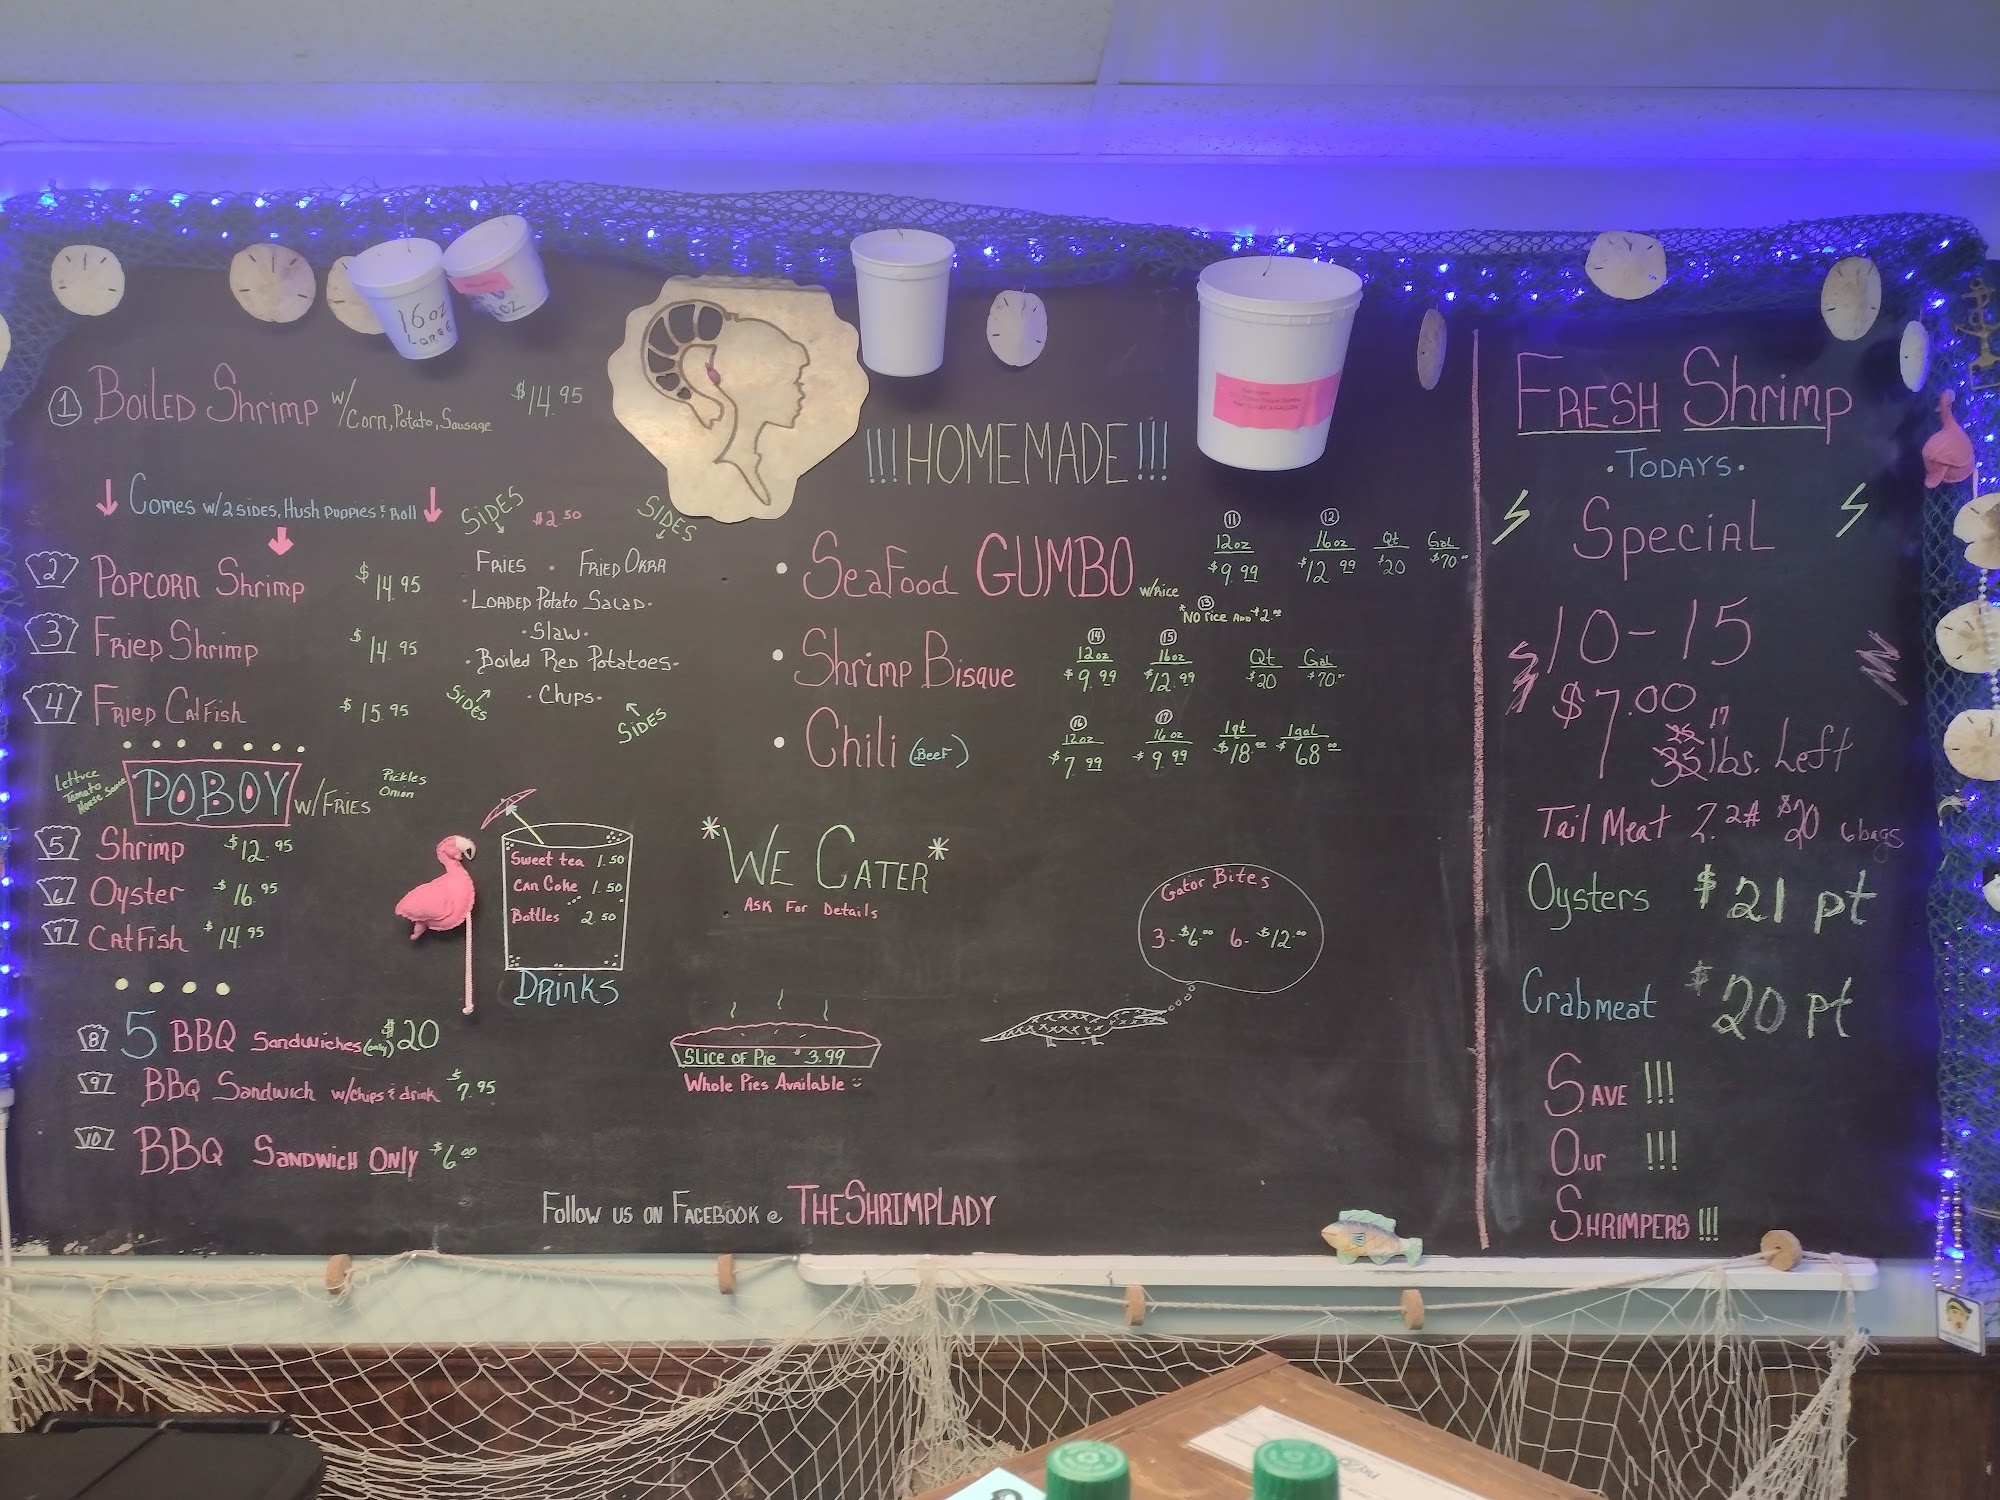 16 oz
LARGE
OZ
① BOILED Shrimp w/ Corn, Potato, Sausage $14.95
Comes w/2 SIDES, HUSH PUPPIES & Roll
2 POPCORN Shrimp $14.95
3 FRIED Shrimp $14.95
4 FRIED CATFISH $15.95
Lettuce
Tomato
POBOY w/FRIES
Pickles
Onion
5 Shrimp $12.95
6 Oyster $16.95
7 CATFISH $14.95
8 5 BBQ Sandwiches (only) $20
9 BBQ Sandwich w/chips & drink $7.95
10 BBQ SANDWICH ONLY $6.00
SIDES $2.50 SIDES
FRIES . FRIED OKRA
·LOADED Potato SALAD·
·Slaw·
·Boiled Red Potatoes·
SIDES ·Chips·
SIDES
Sweet tea 1.50
CAN Coke 1.50
Bottles 2.50
DRINKS
!!!HOMEMADE!!!
• SeaFood GUMBO w/RICE ⑪ 12oz $9.99 ⑫ 16oz $12.99 Qt $20 Gal $70.00
⑬ *NO rice ADD $2.00
• Shrimp Bisque ⑭ 12oz $9.99 ⑮ 16oz $12.99 Qt $20 Gal $70.00
• Chili (BEEF) ⑯ 12oz $7.99 ⑰ 16oz $9.99 1qt $18.00 1gal $68.00
*WE CATER*
ASK FOR Details
Gator Bites
3-$6.00 6-$12.00
SLICE OF PIE $3.99
WHOLE PIES AVAILABLE
Follow US ON FACEBOOK @ THESHRIMPLADY
FRESH Shrimp
·TODAYS·
SpeciAL
10-15
$7.00
25 17
35 lbs. Left
Tail Meat 2.2# $20 6 bags
Oysters $21 pt
Crabmeat $20 pt
SAVE !!!
Our !!!
SHRIMPERS !!!